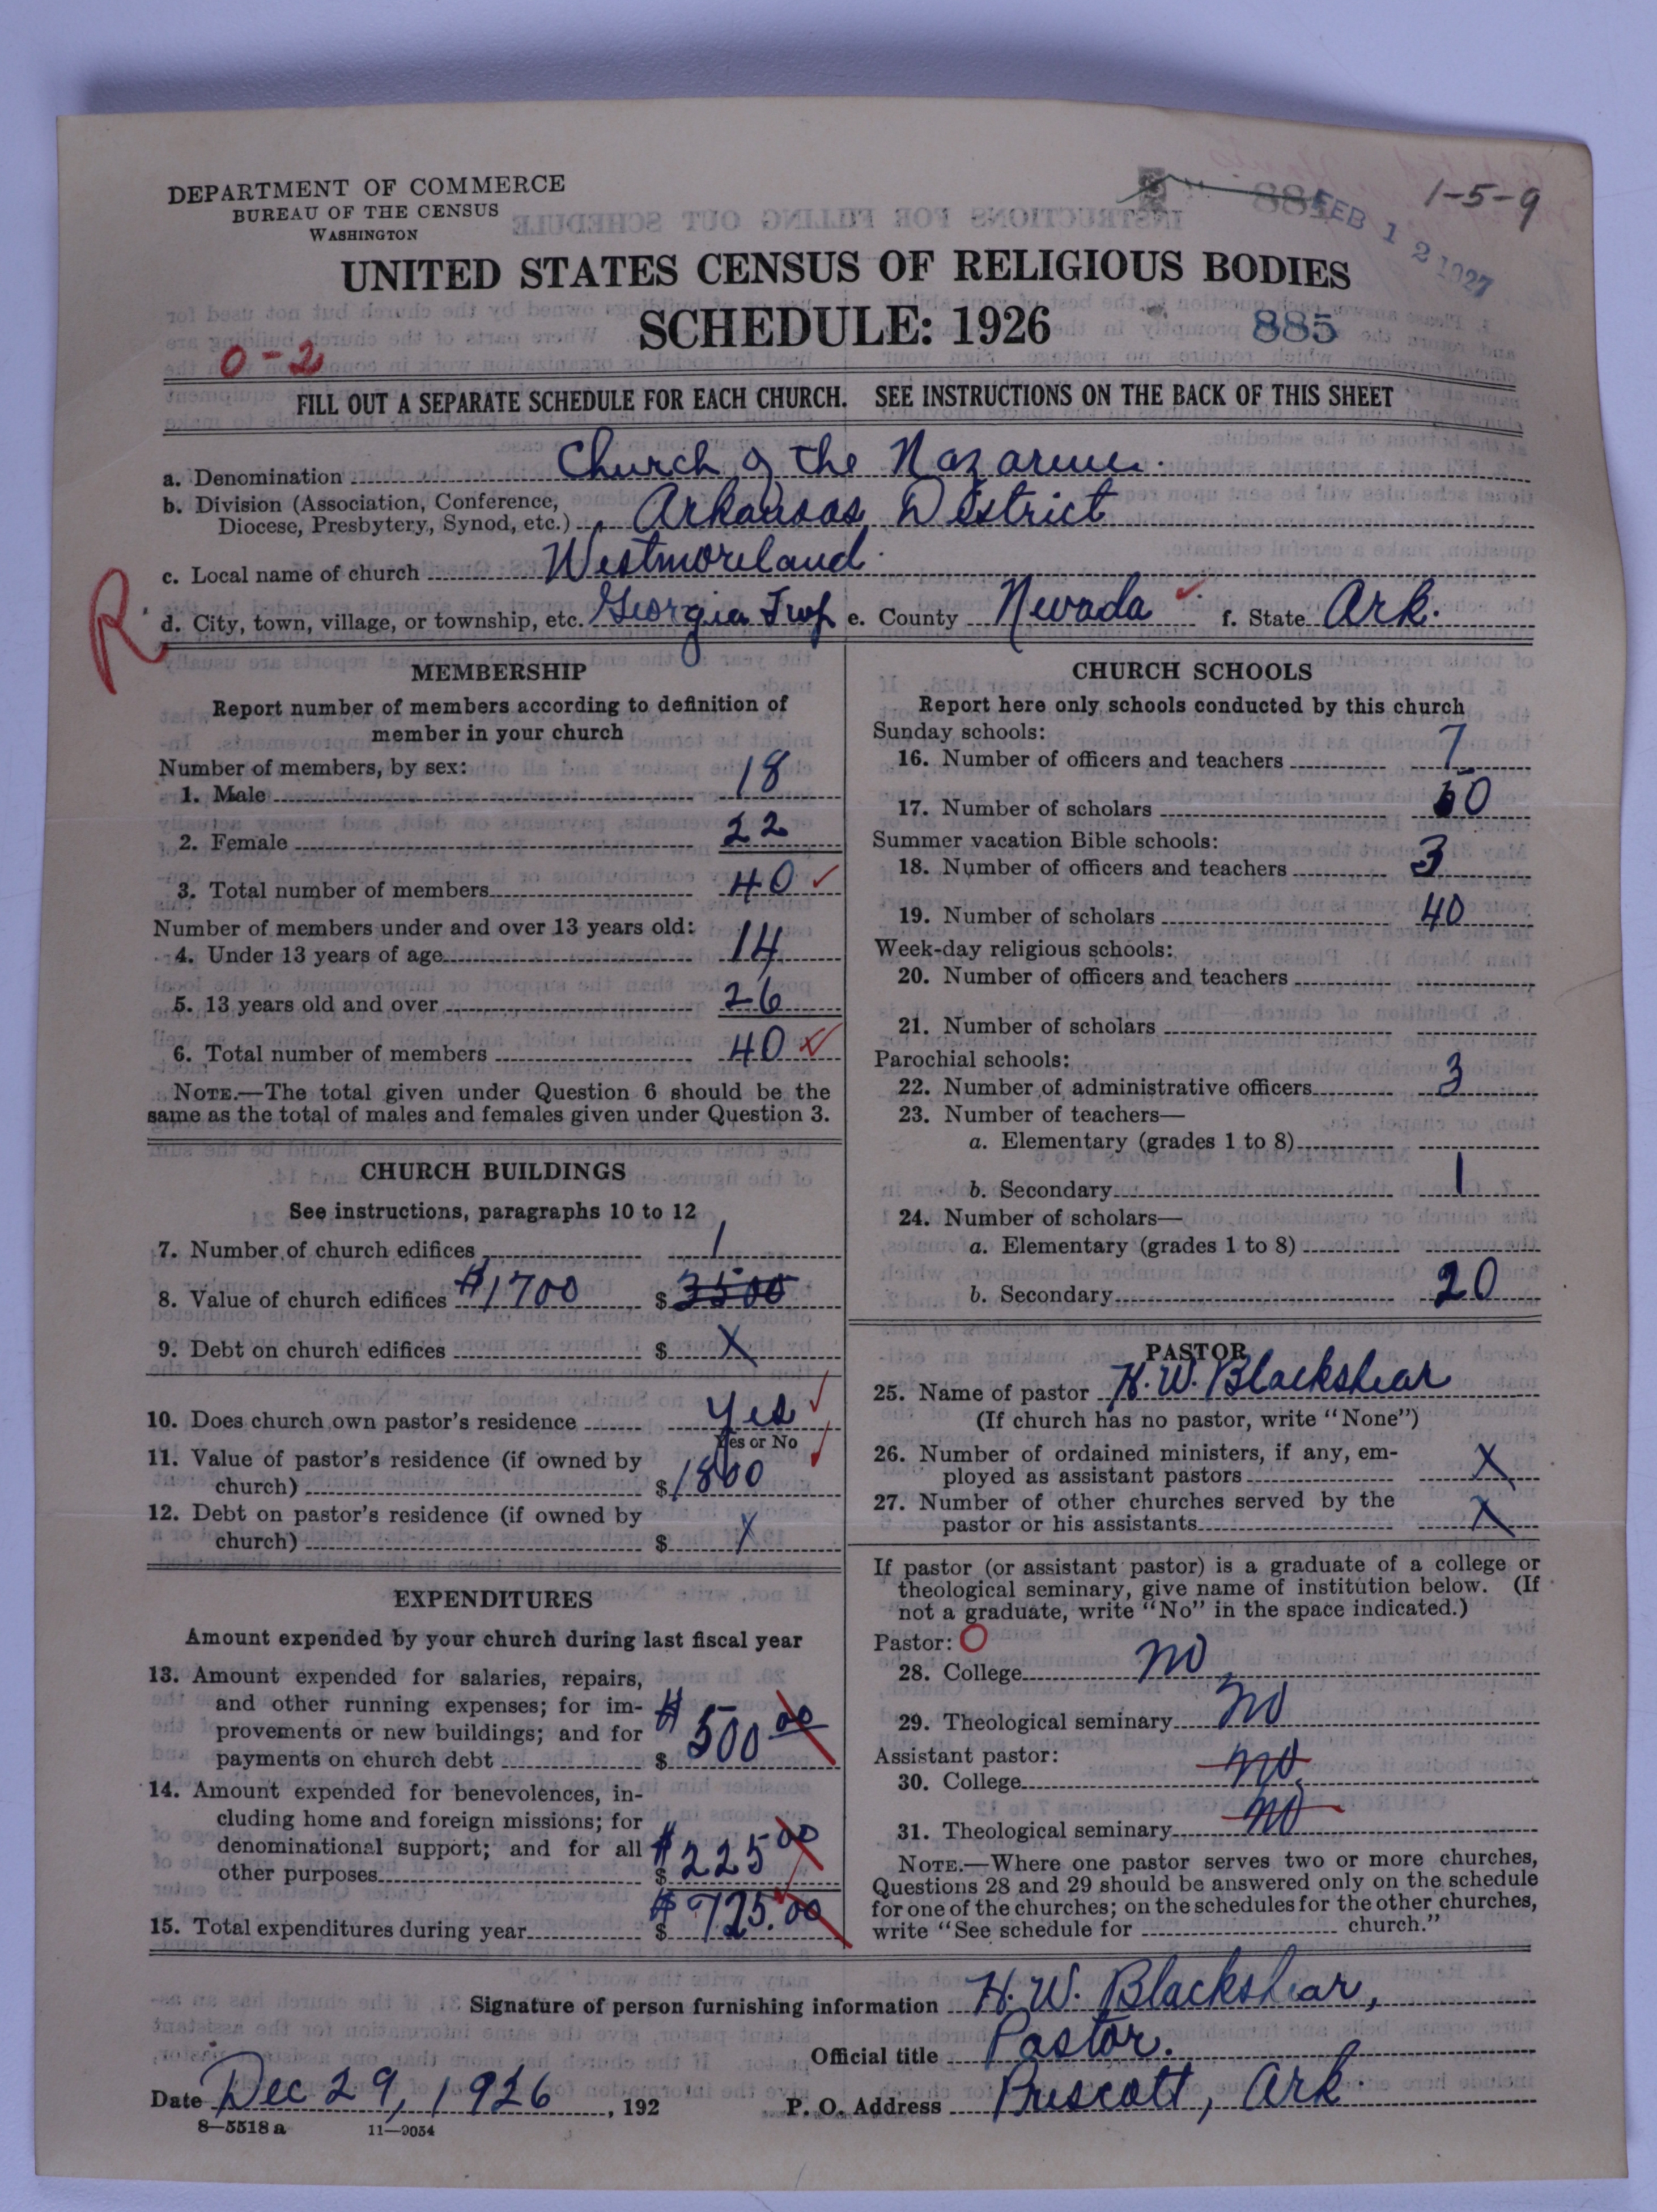 DEPARTMENT OF COMMERCE
BUREAU OF THE CENSUS
WASHINGTON
1-5-9
FEB 12 1927
885
UNITED STATES CENSUS OF RELIGIOUS BODIES
SCHEDULE: 1926
885
0-2
FILL OUT A SEPARATE SCHEDULE FOR EACH CHURCH. SEE INSTRUCTIONS ON THE BACK OF THIS SHEET
a. Denomination Church of the Nazarene.
b. Division (Association, Conference,
Diocese, Presbytery, Synod, etc.) Arkansas District
c. Local name of church Westmoreland
R
d. City, town, village, or township, etc. Georgia Twp e. County Nevada f. State Ark.
MEMBERSHIP
Report number of members according to definition of
member in your church
Number of members, by sex:
1. Male 18
2. Female 22
3. Total number of members 40
Number of members under and over 13 years old:
4. Under 13 years of age 14
5. 13 years old and over 26
6. Total number of members 40
NOTE.—The total given under Question 6 should be the
same as the total of males and females given under Question 3.
CHURCH BUILDINGS
See instructions, paragraphs 10 to 12
7. Number of church edifices 1
8. Value of church edifices $1700 $ 3500
9. Debt on church edifices $ X
10. Does church own pastor's residence Yes
Yes or No
11. Value of pastor's residence (if owned by
church) $ 1800
12. Debt on pastor's residence (if owned by
church) $ X
EXPENDITURES
Amount expended by your church during last fiscal year
13. Amount expended for salaries, repairs,
and other running expenses; for im-
provements or new buildings; and for
payments on church debt $ $500 00
14. Amount expended for benevolences, in-
cluding home and foreign missions; for
denominational support; and for all
other purposes $ $225 00
15. Total expenditures during year $ $725.00
CHURCH SCHOOLS
Report here only schools conducted by this church
Sunday schools:
16. Number of officers and teachers 7
17. Number of scholars 50
Summer vacation Bible schools:
18. Number of officers and teachers 3
19. Number of scholars 40
Week-day religious schools:
20. Number of officers and teachers
21. Number of scholars
Parochial schools:
22. Number of administrative officers 3
23. Number of teachers—
a. Elementary (grades 1 to 8)
b. Secondary 1
24. Number of scholars—
a. Elementary (grades 1 to 8)
b. Secondary 20
PASTOR
25. Name of pastor H. W. Blackshear
(If church has no pastor, write "None")
26. Number of ordained ministers, if any, em-
ployed as assistant pastors X
27. Number of other churches served by the
pastor or his assistants X
If pastor (or assistant pastor) is a graduate of a college or
theological seminary, give name of institution below. (If
not a graduate, write "No" in the space indicated.)
Pastor: O
28. College no
29. Theological seminary no
Assistant pastor:
30. College no
31. Theological seminary no
NOTE.—Where one pastor serves two or more churches,
Questions 28 and 29 should be answered only on the schedule
for one of the churches; on the schedules for the other churches,
write "See schedule for church."
Signature of person furnishing information H. W. Blackshear,
Official title Pastor.
Date Dec 29, 1926, 192 P. O. Address Prescott, Ark.
8—5518 a 11—9054